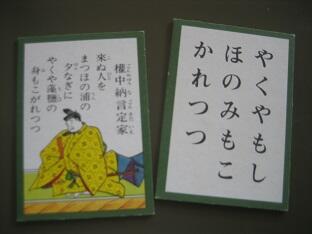 權中納言定家
來ぬ人を
まつほの浦の
夕なぎに
やくや藻鹽の
身もこがれつつ
やくやもし
ほのみもこ
かれつつ